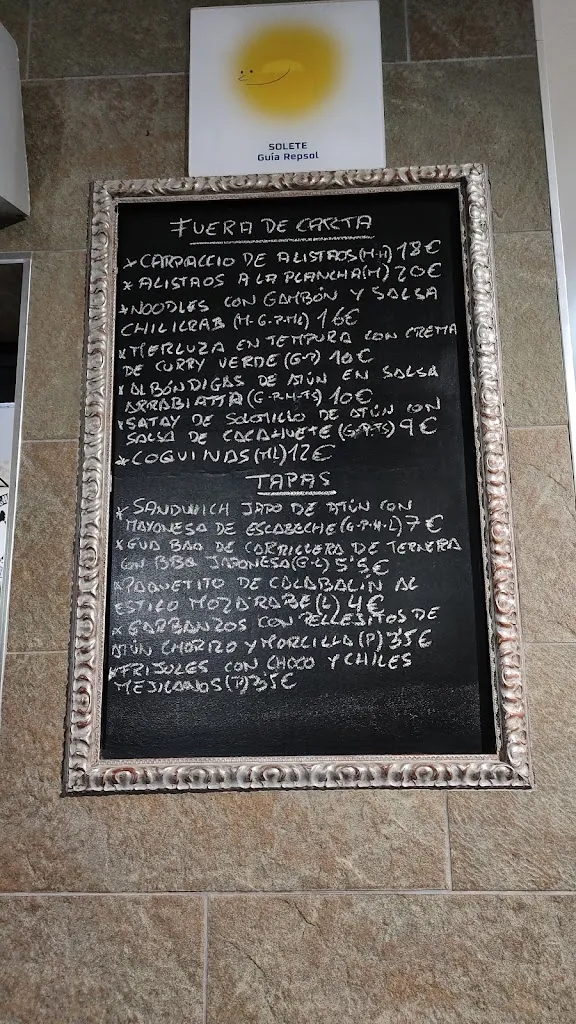 SOLETE
Guía Repsol
FUERA DE CARTA
*CARPACCIO DE ALISTAOS(M-H) 18€
*ALISTAOS A LA PLANCHA(M) 20€
*NOODLES CON GAMBÓN Y SALSA
CHILICRAB (M-G-P-ML) 16€
*MERLUZA EN TEMPURA CON CREMA
DE CURRY VERDE (G-P) 10€
*ALBÓNDIGAS DE ATÚN EN SALSA
ARRABIATTA (G-P-H-TS) 10€
*SATAY DE SOLOMILLO DE ATÚN CON
SALSA DE CACAHUETE (G-P-TS) 9€
*COQUINAS (ML) 12€
TAPAS
*SANDWICH JAPO DE ATÚN CON
MAYONESA DE ESCABECHE (G-P-H-L) 7€
*GUA BAO DE CARRILLERA DE TERNERA
CON BBQ JAPONESA(G-L) 5'5€
*PAQUETITO DE CALABACÍN AL
ESTILO MOZÁRABE (L) 4€
*GARBANZOS CON PELLEJITOS DE
ATÚN CHORIZO Y MORCILLA (P) 3'5€
*FRIJOLES CON CHOCO Y CHILES
MEJICANOS (P) 3'5€